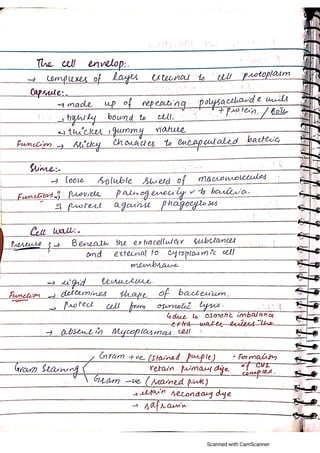 The cell envelop:.
→ complexes of layers external to cell protoplasm
Capsule:.
→ made up of repeating polysaccharide units
+ protein / both
→ tightly bound to cell.
→ thicker, gummy nature
Function → sticky character to encapsulated bacteria
Slime:-
→ loose soluble shield of macromolecules
Functions i) provide pathogenecity to bacteria.
ii) protect against phagocytoses
Cell Wall:.
→ Beneath the extracellular substances
and external to cytoplasmic cell
membrane
→ rigid structure
Function → determines shape of bacterium.
→ Protect cell from osmotic lyses.
↳ due to osmotic imbalance
extra water enters the
cell
→ absent in Mycoplasmas
Gram Staining
Gram +ve (stained purple)
retain primary dye
• Formation
of CVI
complex.
Gram -ve (stained pink)
→ retain secondary dye
→ safranin
Scanned with CamScanner